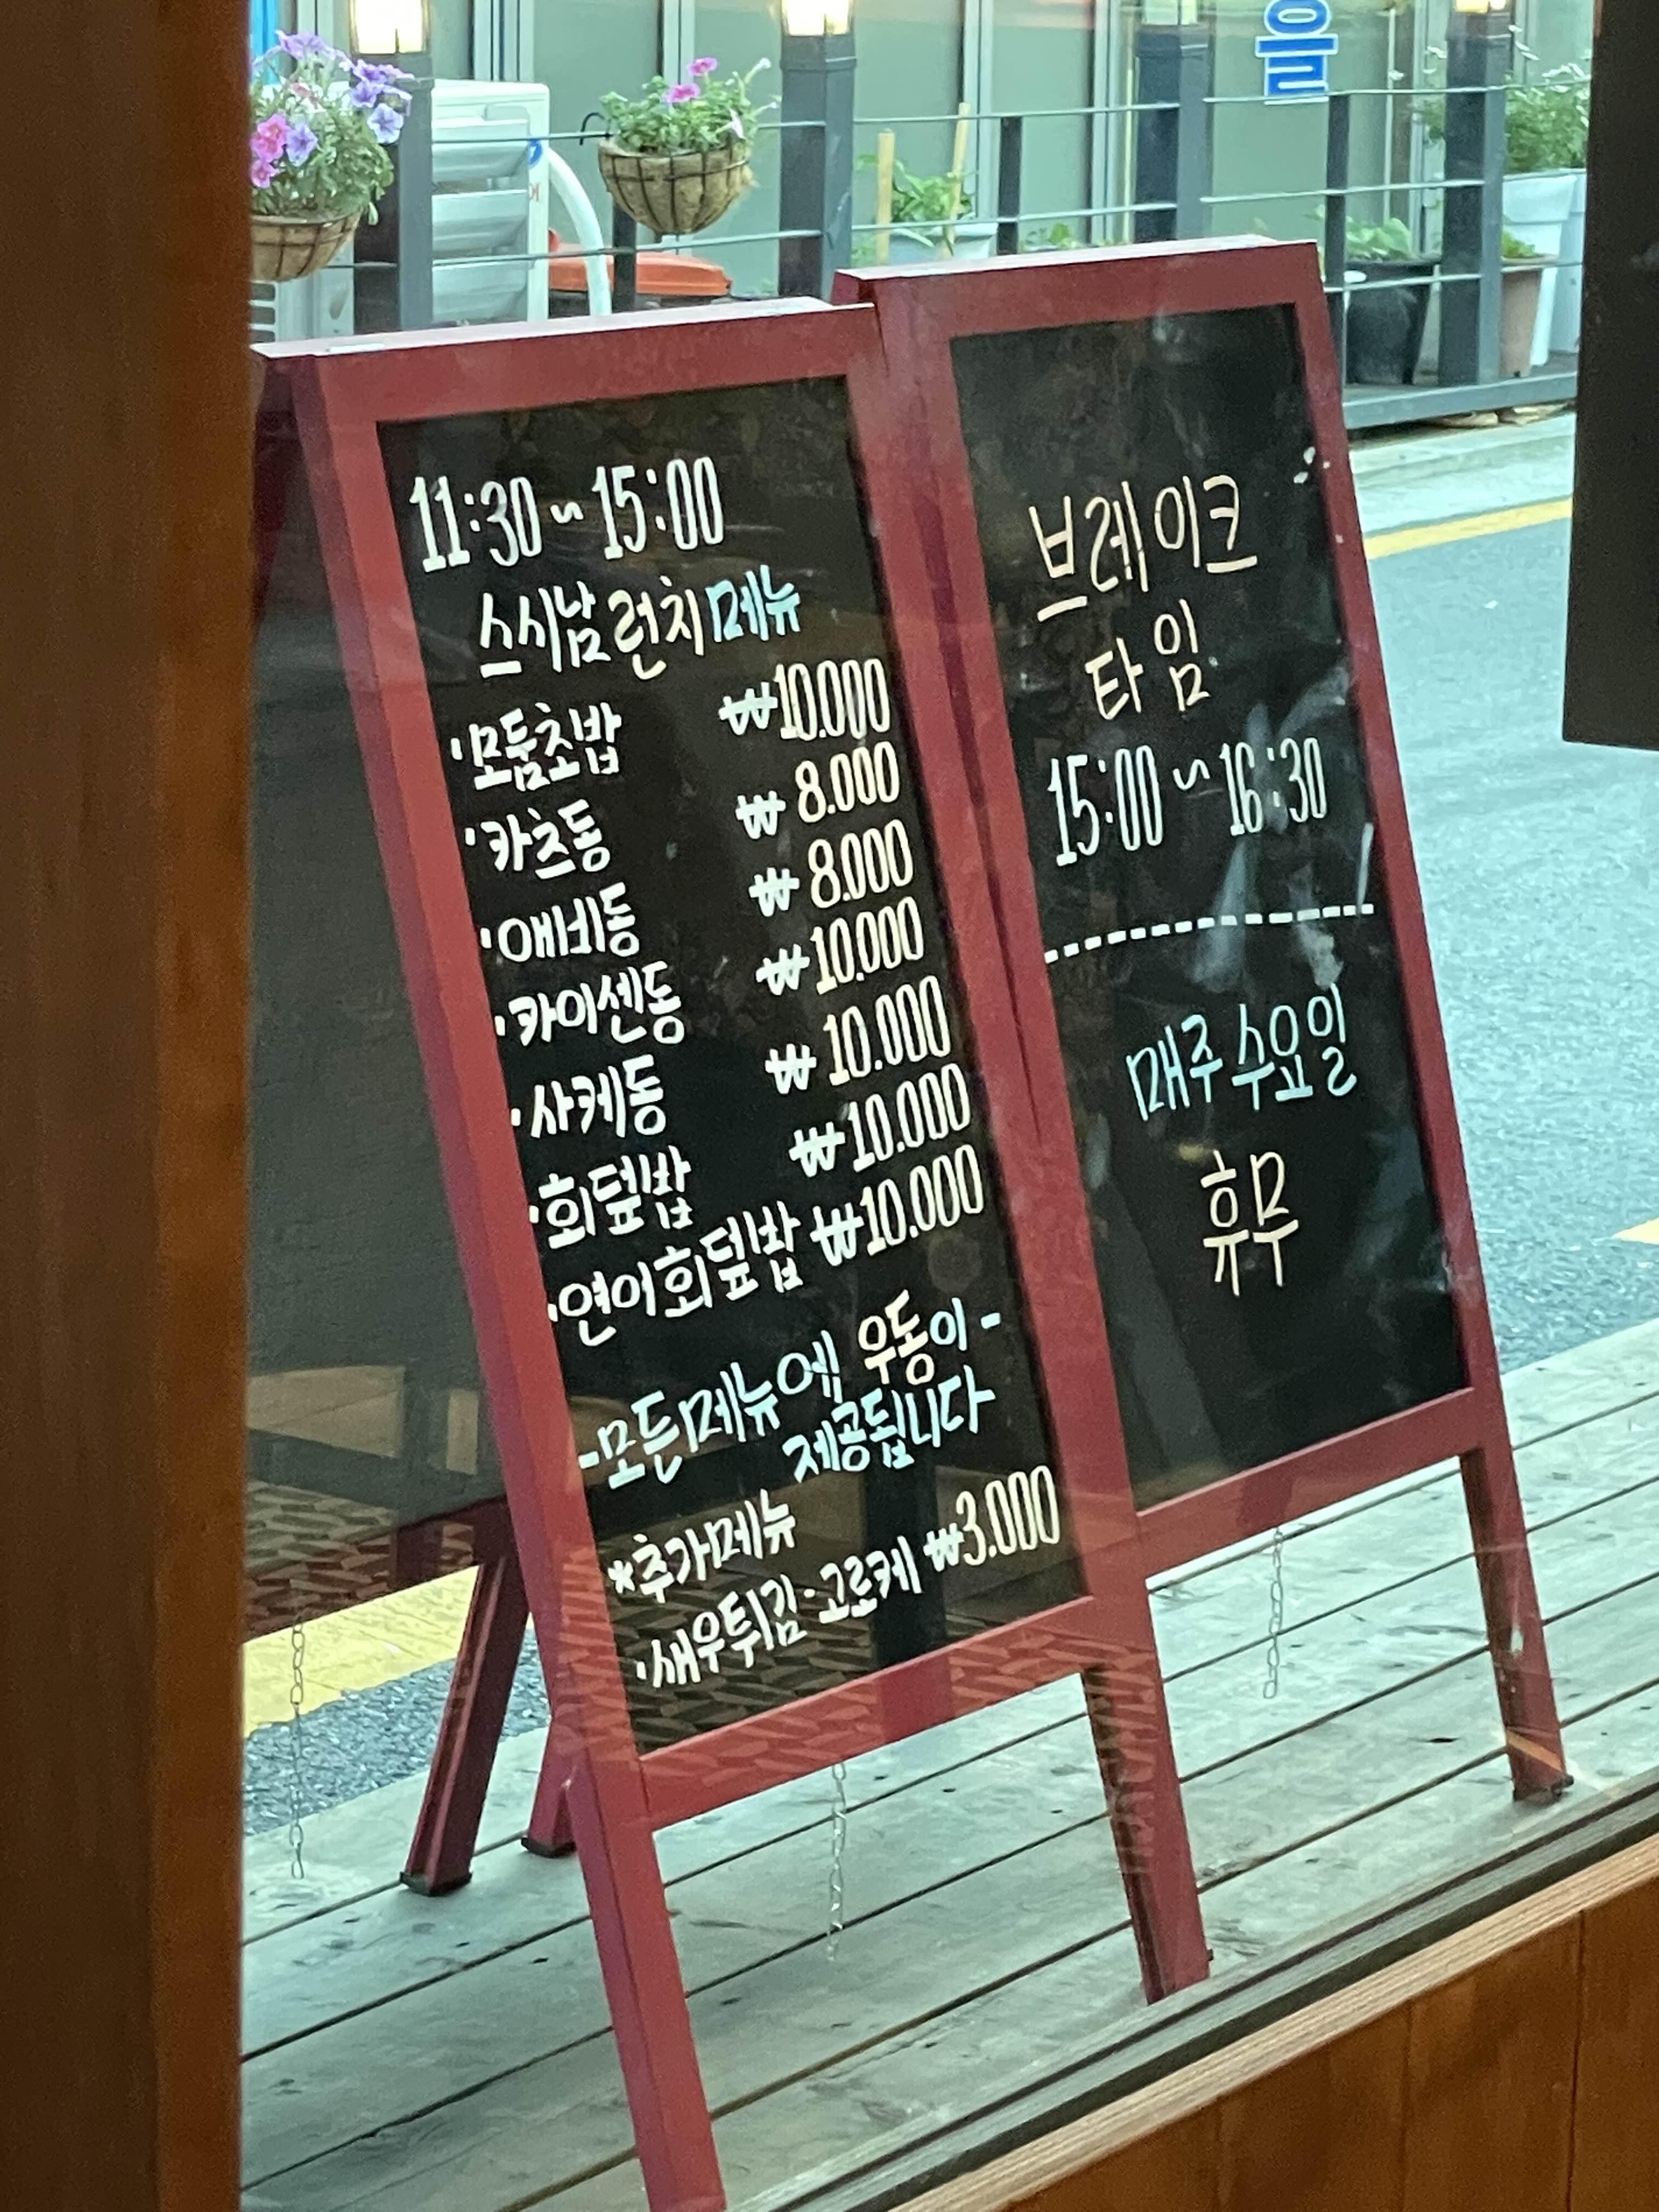 11:30~15:00
스시남 런치메뉴
·모둠초밥 ₩10.000
·카츠동 ₩8.000
·애비동 ₩8.000
·카이센동 ₩10.000
·사케동 ₩10.000
·회덮밥 ₩10.000
·연어회덮밥 ₩10.000
-모든메뉴에 우동이-
제공됩니다
*추가메뉴
·새우튀김·고로케 ₩3.000
브레이크
타임
15:00~16:30
매주 수요일
휴무